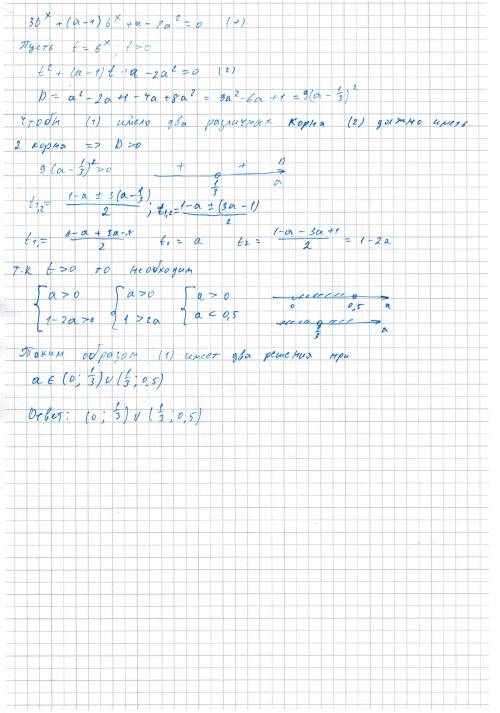 36^x + (a-1) 6^x + a - 2a² = 0 (1)
Пусть t = 6^x; t>0
t² + (a-1) t + a - 2a² = 0 (2)
D = a² - 2a + 1 - 4a + 8a² = 9a² - 6a + 1 = 9(a - 1/3)²
Чтобы (1) имело два различных корня (2) должно иметь
2 корня => D>0
9(a - 1/3)² > 0 + + D
1/3 a
t₁,₂ = (1-a ± 3(a - 1/3))/2 ; t₁,₂ = (1-a ± (3a-1))/2
t₁ = (1-a+3a-1)/2 t₁ = a t₂ = (1-a-3a+1)/2 = 1-2a
Т.К t>0 то необходим
{a>0 {a>0 {a>0 0 0,5 a
{1-2a>0 {1>2a {a<0,5 1/3 a
Таким образом (1) имеет два решения при
a ∈ (0; 1/3) ∪ (1/3; 0,5)
Ответ: (0; 1/3) ∪ (1/3; 0,5)